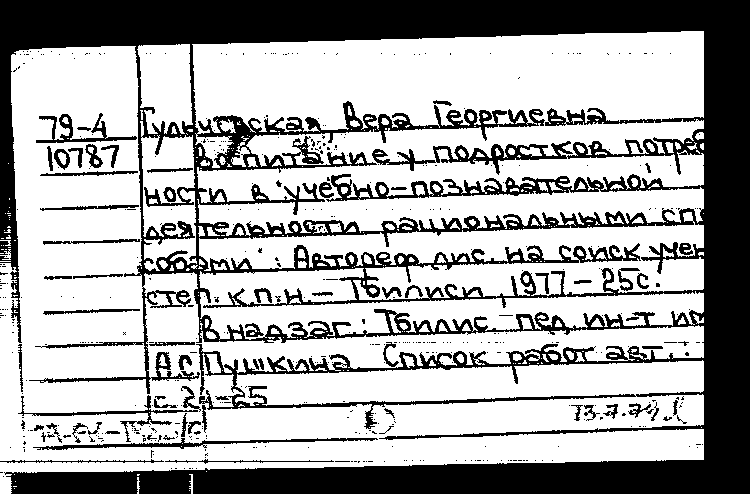 79-4 Гульчевская, Вера Георгиевна
10787 Воспитание у подростков потреб
ности в учебно-познавательной
деятельности рациональными спо
собами : Автореф. дис. на соиск. учен
степ. к.п.н. – Тбилиси, 1977. – 25с.
В надзаг.: Тбилис. пед. ин-т им
А.С. Пушкина. Список работ авт.:
с. 24-25
13.7.79